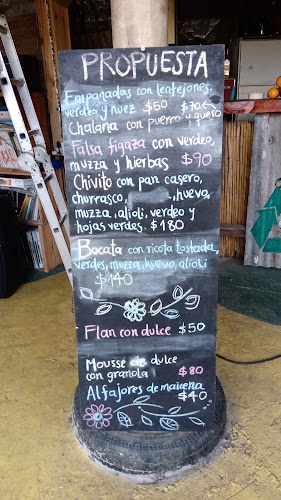 PROPUESTA
Empanadas con lentejones,
verdeo y nuez $60 $70
Chalana con puerro y queso
Falsa figaza con verdeo,
muzza y hierbas $90
Chivito con pan casero,
churrasco, , huevo,
muzza, alioli, verdeo y
hojas verdes. $180
Bocata con ricota tostada,
verdes, muzza, huevo, alioli
$140
Flan con dulce $50
Mousse de dulce
con granola $80
Alfajores de maicena
$40